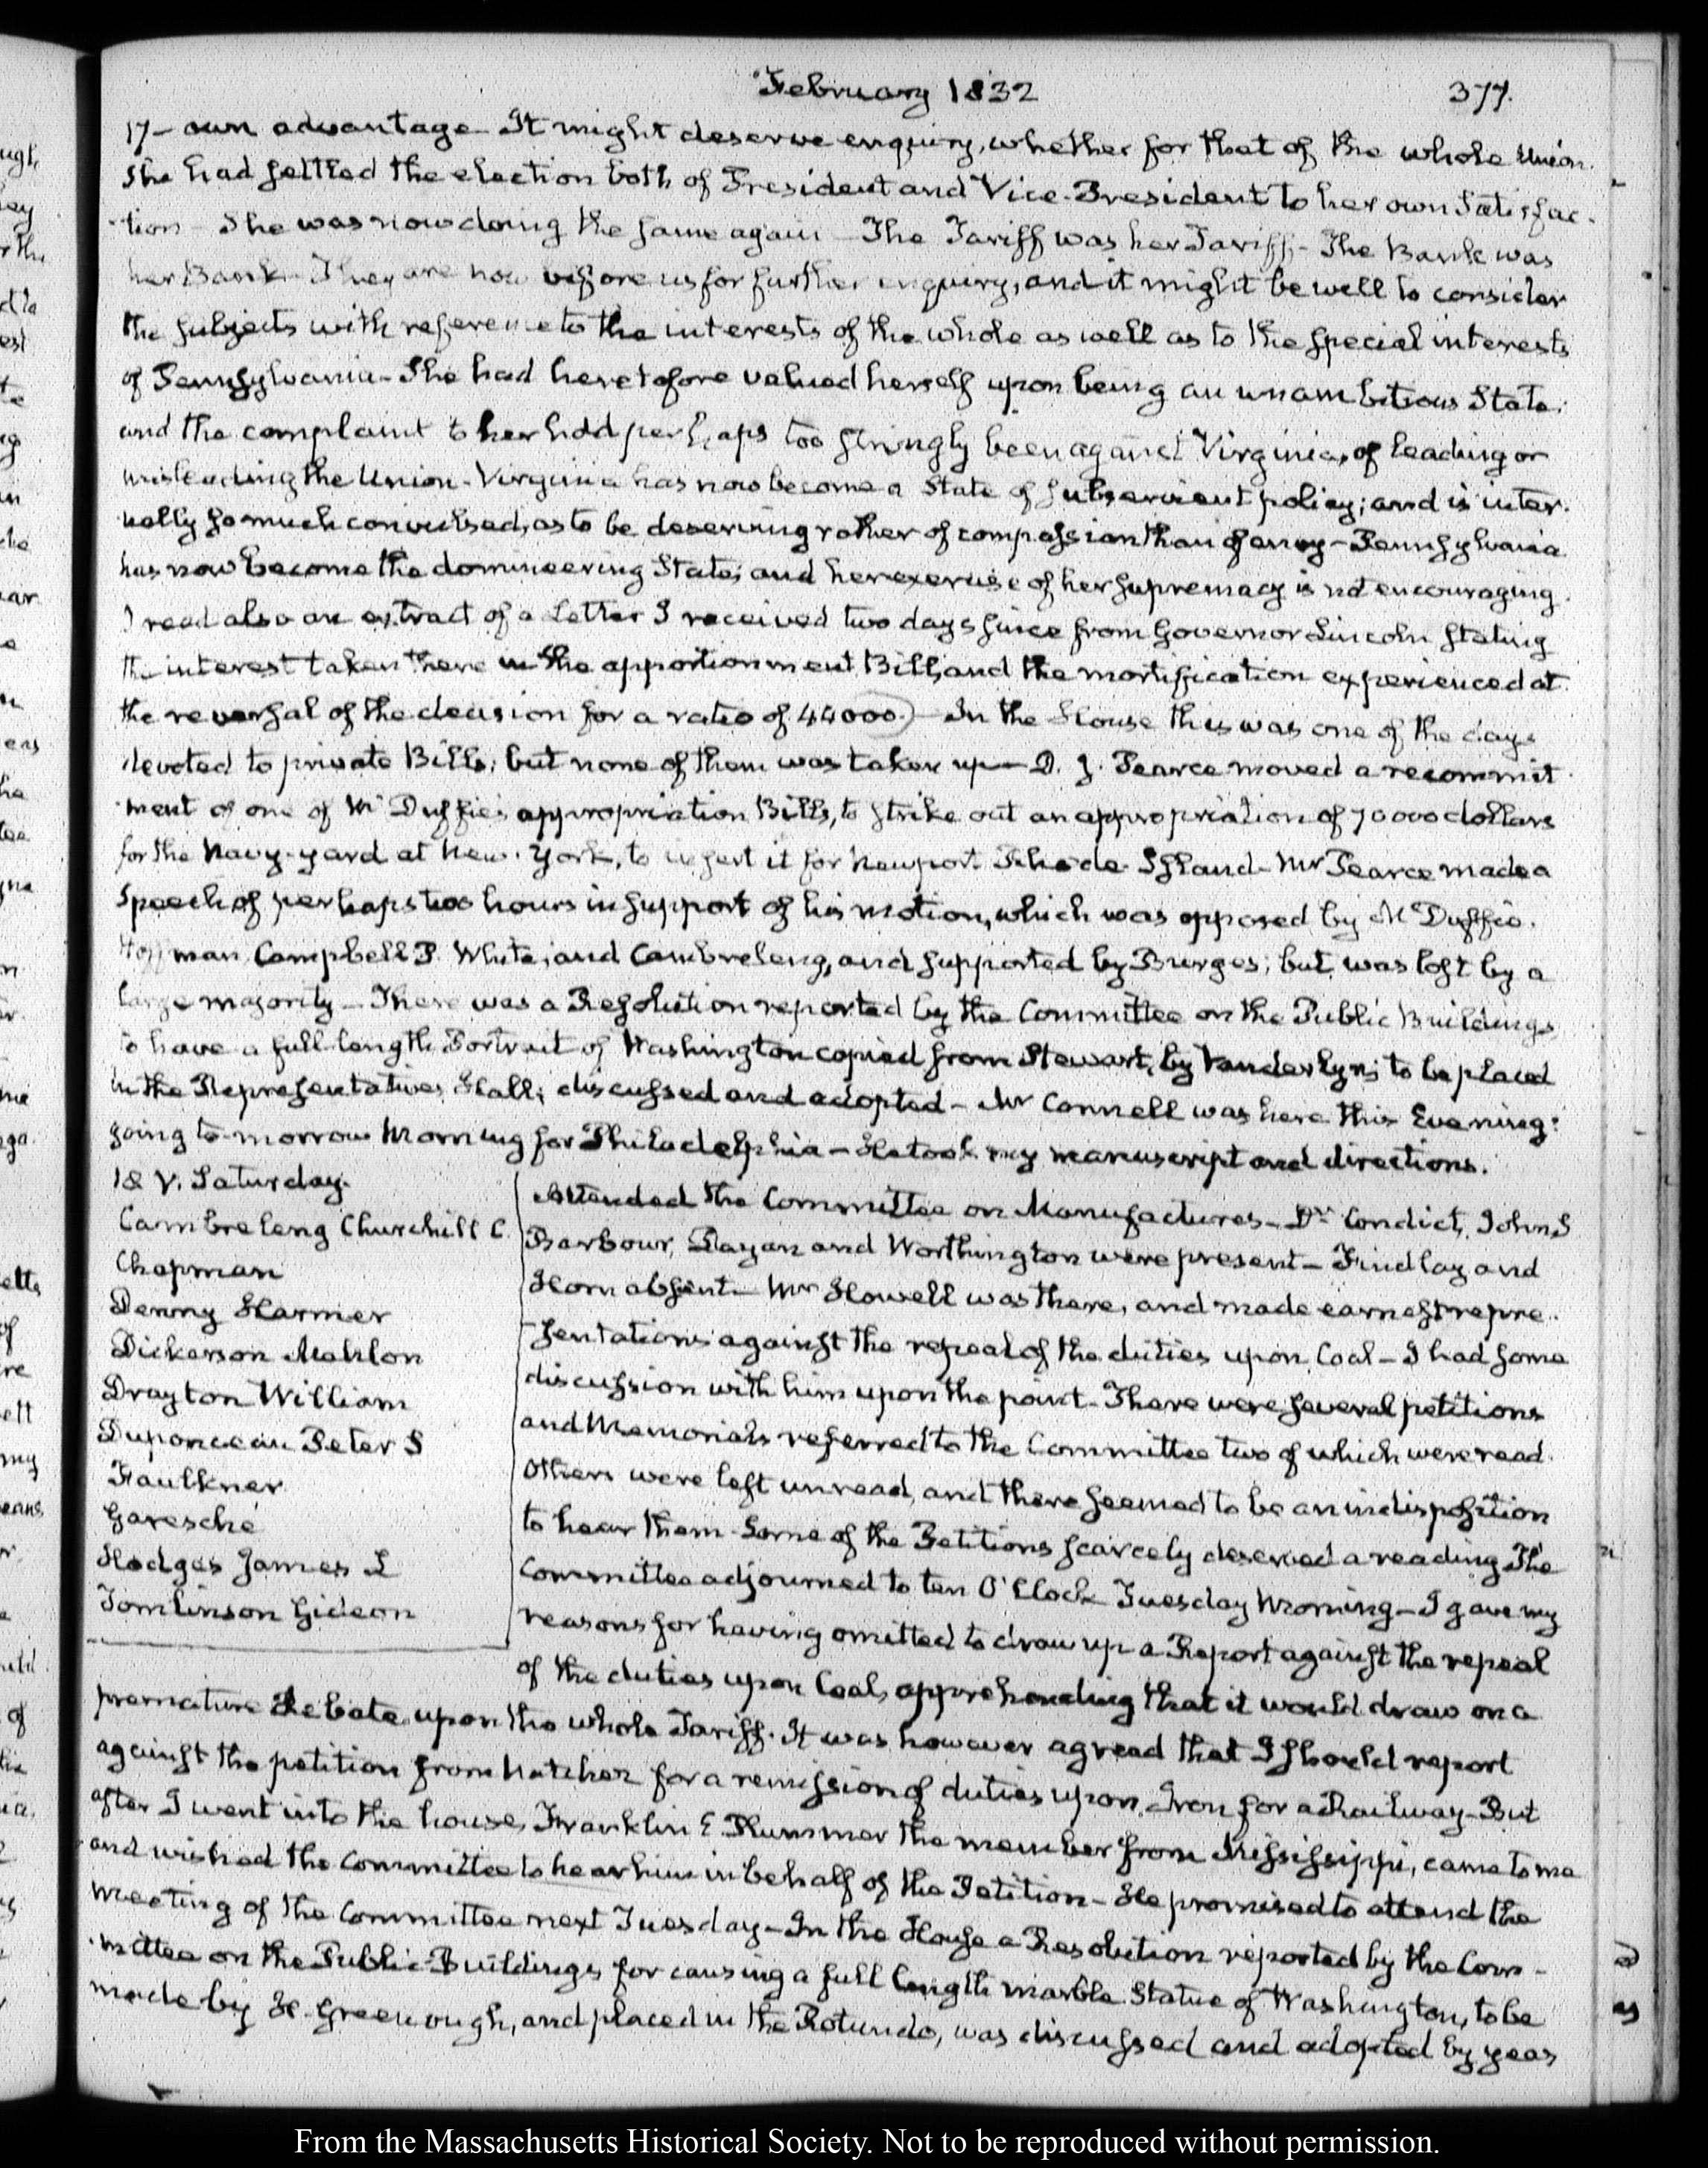 February 1832
377.
17 - own advantage It might deserve enquiry, whether for that of the whole Union.
She had settled the election both of President and Vice-President to her own Satisfac-
-tion - She was now doing the same again - The Tariff was her Tariff - The Bank was
her Bank - They are now before us for further enquiry, and it might be well to consider
the subjects with reference to the interests of the whole as well as to the special interests
of Pennsylvania - She had heretofore valued herself upon being an unambitious State;
and the complaint to her had perhaps too strongly been against Virginia, of leading or
misleading the Union - Virginia has now become a State of subservient policy; and is inter-
nally so much convulsed, as to be deserving rather of compassion than of envy - Pennsylvania
has now become the domineering State; and her exercise of her supremacy is not encouraging.
I read also an extract of a Letter I received two days since from Governor Lincoln stating
the interest taken there in the apportionment Bill, and the mortification experienced at
the reversal of the decision for a ratio of 44000.) - In the House this was one of the days
devoted to private Bills; but none of them was taken up - D. J. Pearce moved a recommit-
-ment of one of Mc Duffie's appropriation Bills, to strike out an appropriation of 70000 dollars
for the Navy-yard at New-York, to insert it for Newport Rhode-Island - Mr Pearce made a
Speech of perhaps two hours in support of his motion, which was opposed by McDuffie.
Hoffman, Campbell P. White, and Cambreleng, and supported by Burges; but was lost by a
large majority - There was a Resolution reported by the Committee on the Public Buildings,
to have a full length Portrait of Washington copied from Stewart, by Vanderlyn; to be placed
in the Representatives Hall; discussed and adopted - Mr Connell was here this Evening:
going to-morrow Morning for Philadelphia - He took my manuscript and directions.
18 V. Saturday.
Cambreleng Churchill C.
Chapman
Denny Harmer
Dickerson Mahlon
Drayton William
Duponceau Peter S
Faulkner
Garesché
Hodges James L
Tomlinson Gideon
Attended the Committee on Manufactures - Dr Condict, John S
Barbour, Dayan and Worthington were present - Findlay and
Horn absent - Mr Howell was there, and made earnest repre-
-sentations against the repeal of the duties upon Coal - I had some
discussion with him upon the point - There were several petitions
and Memorials referred to the Committee two of which were read.
Others were left unread, and there seemed to be an indisposition
to hear them - Some of the Petitions scarcely deserved a reading The
Committee adjourned to ten O'Clock Tuesday Morning - I gave my
reasons for having omitted to draw up a Report against the repeal
of the duties upon Coal, apprehending that it would draw on a
premature Debate upon the whole Tariff. It was however agreed that I should report
against the petition from Natchez for a remission of duties upon Iron for a Railway - But
after I went into the house, Franklin E Plummer the member from Mississippi, came to me
and wished the Committee to hear him in behalf of the Petition - He promised to attend the
meeting of the Committee next Tuesday - In the House a Resolution reported by the Com-
-mittee on the Public Buildings for causing a full length marble Statue of Washington, to be
made by H. Greenough, and placed in the Rotundo, was discussed and adopted by yeas
From the Massachusetts Historical Society. Not to be reproduced without permission.